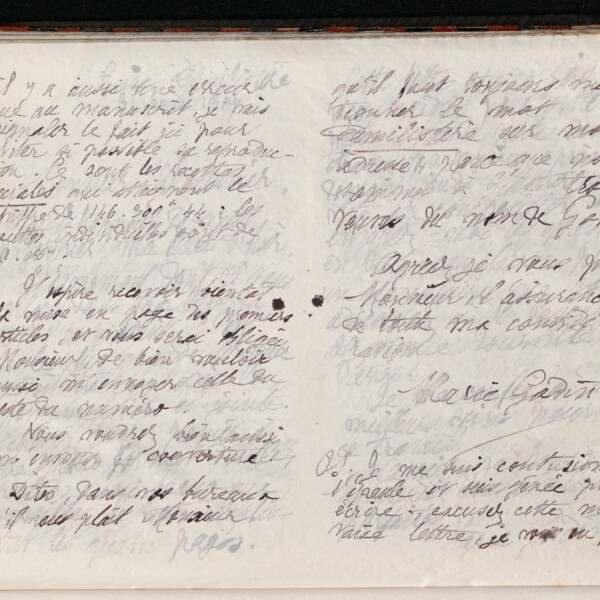 il y a aussi une erreur
que au manuscrit, je vais
signaler le fait ici pour
éviter si possible sa reproduc-
tion. Ce sont les recettes
sociales qui atteignent le
chiffre de 1146.300 44 ; les
recettes individuelles sont de
J'espère recevoir bientôt
la mise en page des premiers
articles, et vous serai obligée
Monsieur, de bien vouloir
aussi m'envoyer celle du
reste du numéro
Nous voudrez bien aussi
m'envoyer la couverture.
Dites, dans vos bureaux
s'il vous plaît Monsieur
qu'il faut toujours me
donner le mot
Familistère sur mon
adresse parce que nous
sommes à
veuves du nom de God
Agréez je vous p
Monsieur l'assurance
de toute ma considé
Marie Godin
PS. Je me suis contusionn
l'épaule et suis gênée p
écrire ; excusez cette m
vaise lettre, je